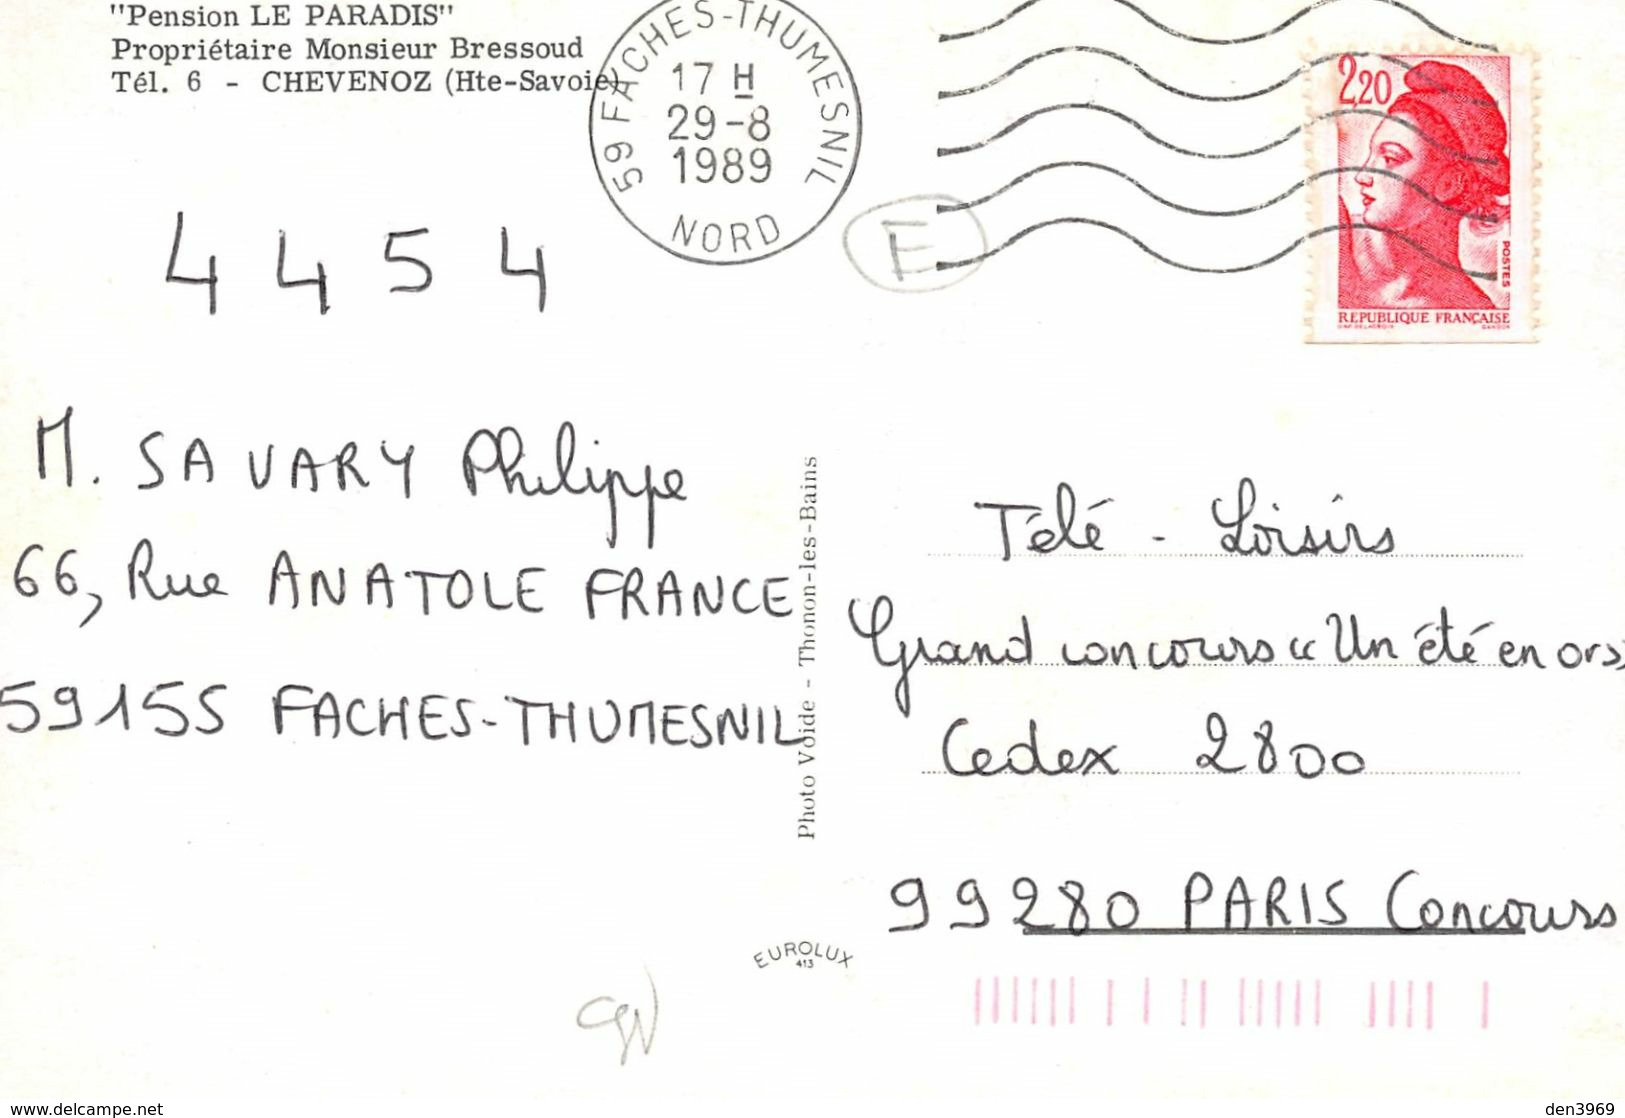 "Pension LE PARADIS"
Propriétaire Monsieur Bressoud
Tél. 6 - CHEVENOZ (Hte-Savoie)
59 FACHES-THUMESNIL
17 H
29-8
1989
NORD
E
2,20
POSTES
REPUBLIQUE FRANÇAISE
4 4 5 4
M. SAVARY Philippe
66, Rue ANATOLE FRANCE
59155 FACHES-THUMESNIL
Photo Voide - Thonon-les-Bains
Télé - Loisirs
Grand concours « Un été en or »
Cedex 2800
99280 PARIS Concours
EUROLUX
413
www.delcampe.net
den3969